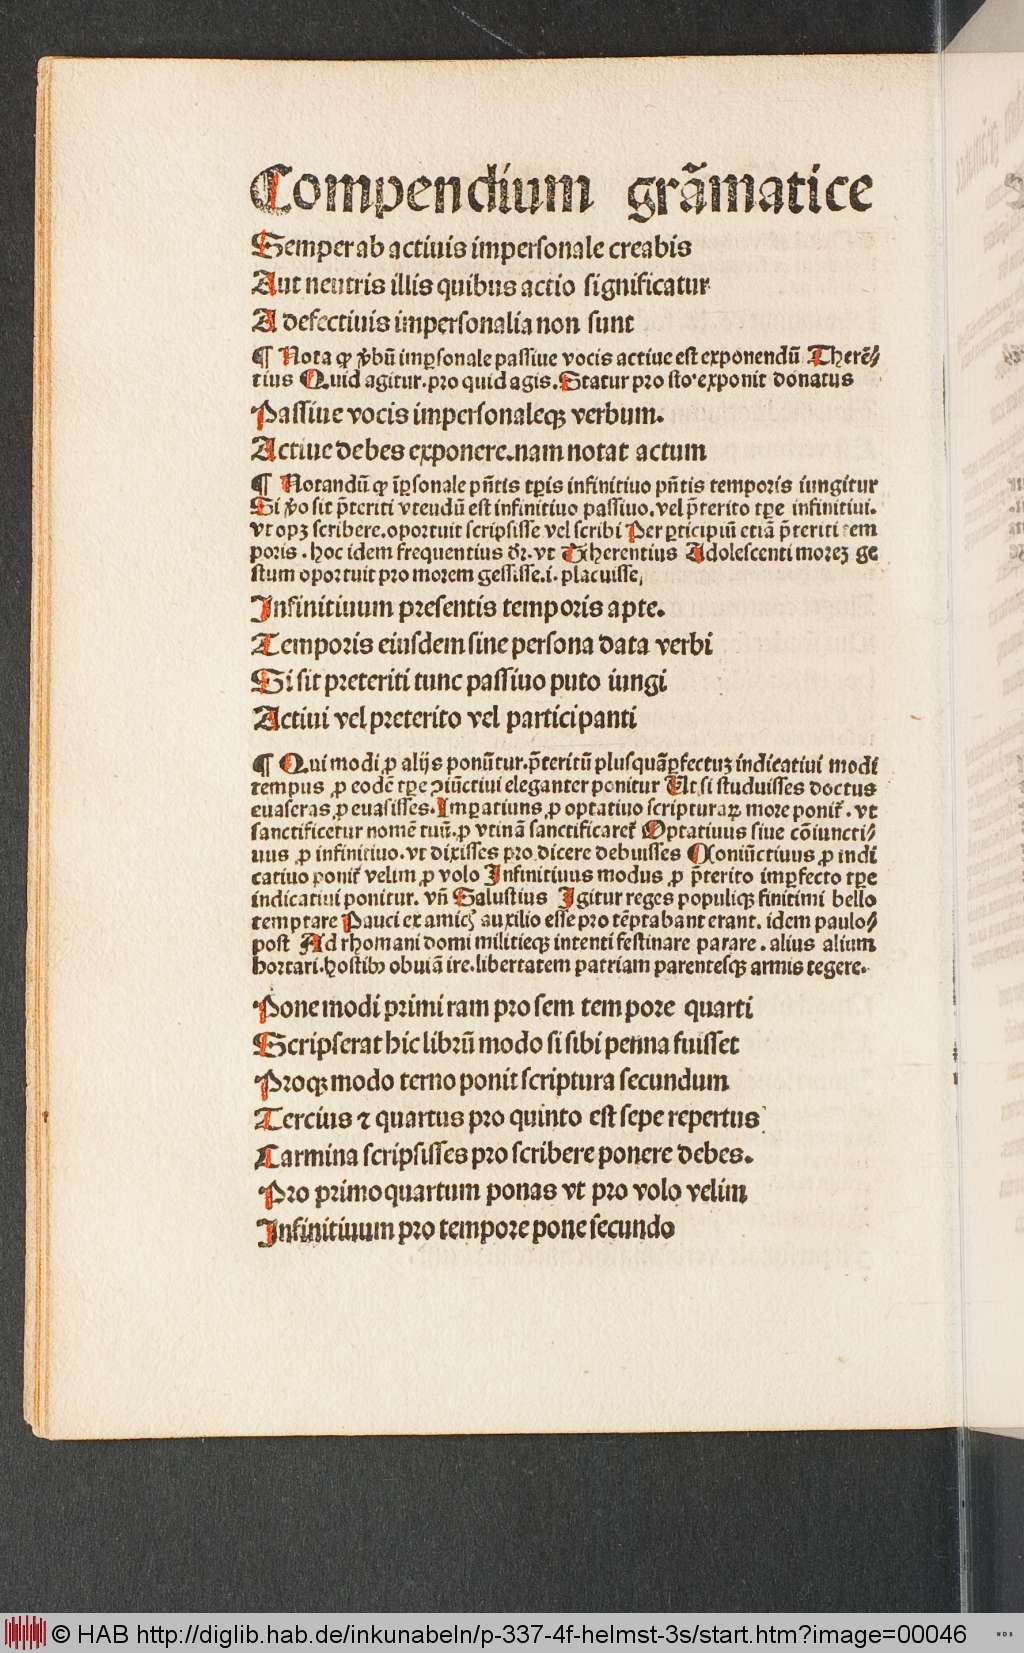 Compendium grãmatice
Semper ab actiuis impersonale creabis
Aut neutris illis quibus actio significatur
A defectiuis impersonalia non sunt
¶ Nota ꝙ v̓bũ imꝑsonale passiue vocis actiue est exponendũ Therẽ⸗
tius Quid agitur. pro quid agis. Statur pro sto exponit donatus
Passiue vocis impersonaleqꝫ verbum.
Actiue debes exponere. nam notat actum
¶ Notandũ ꝙ ĩꝑsonale pñtis tꝑis infinitiuo pñtis temporis iungitur
Si v̓o sit p̃teriti vtendũ est infinitiuo passiuo. vel p̃terito tꝑe infinitiui.
vt opꝫ scribere. oportuit scripsisse vel scribi Per ꝑticipiũ etiã p̃teriti tem
poris. hoc idem frequentius dr̃. vt Therentius Adolescenti moreꝫ ge
stum oportuit pro morem gessisse. i. placuisse,
Infinitiuum presentis temporis apte.
Temporis eiusdem sine persona data verbi
Si sit preteriti tunc passiuo puto iungi
Actiui vel preterito vel participanti
¶ Qui modi ꝓ alijs ponũtur. p̃teritũ plusquãꝑfectuꝫ indicatiui modi
tempus ꝓ eodẽ tꝑe ꝯiũctiui eleganter ponitur Ut si studuisses doctus
euaseras ꝓ euasisses. Imꝑatiuus ꝓ optatiuo scripturaꝝ more ponit᷑. vt
sanctificetur nomẽ tuũ. ꝓ vtinã sanctificaret᷑ Optatiuus siue cõiuncti⸗
uus ꝓ infinitiuo. vt dixisses pro dicere debuisses Coniũctiuus ꝓ indi
catiuo ponit᷑ velim ꝓ volo Infinitiuus modus ꝓ p̃terito imꝑfecto tꝑe
indicatiui ponitur. vñ Salustius Igitur reges populiqꝫ finitimi bello
temptare Pauci ex amicꝭ auxilio esse pro tẽptabant erant. idem paulo⸗
post Ad rhomani domi militieqꝫ intenti festinare parare. alius alium
hortari. hostibꝰ obuiã ire. libertatem patriam parentesqꝫ armis tegere.
Pone modi primi ram pro sem tempore quarti
Scripserat hic librũ modo si sibi penna fuisset
Proqꝫ modo terno ponit scriptura secundum
Tercius ⁊ quartus pro quinto est sepe repertus
Carmina scripsisses pro scribere ponere debes.
Pro primo quartum ponas vt pro volo velim
Infinitiuum pro tempore pone secundo
© HAB http://diglib.hab.de/inkunabeln/p-337-4f-helmst-3s/start.htm?image=00046